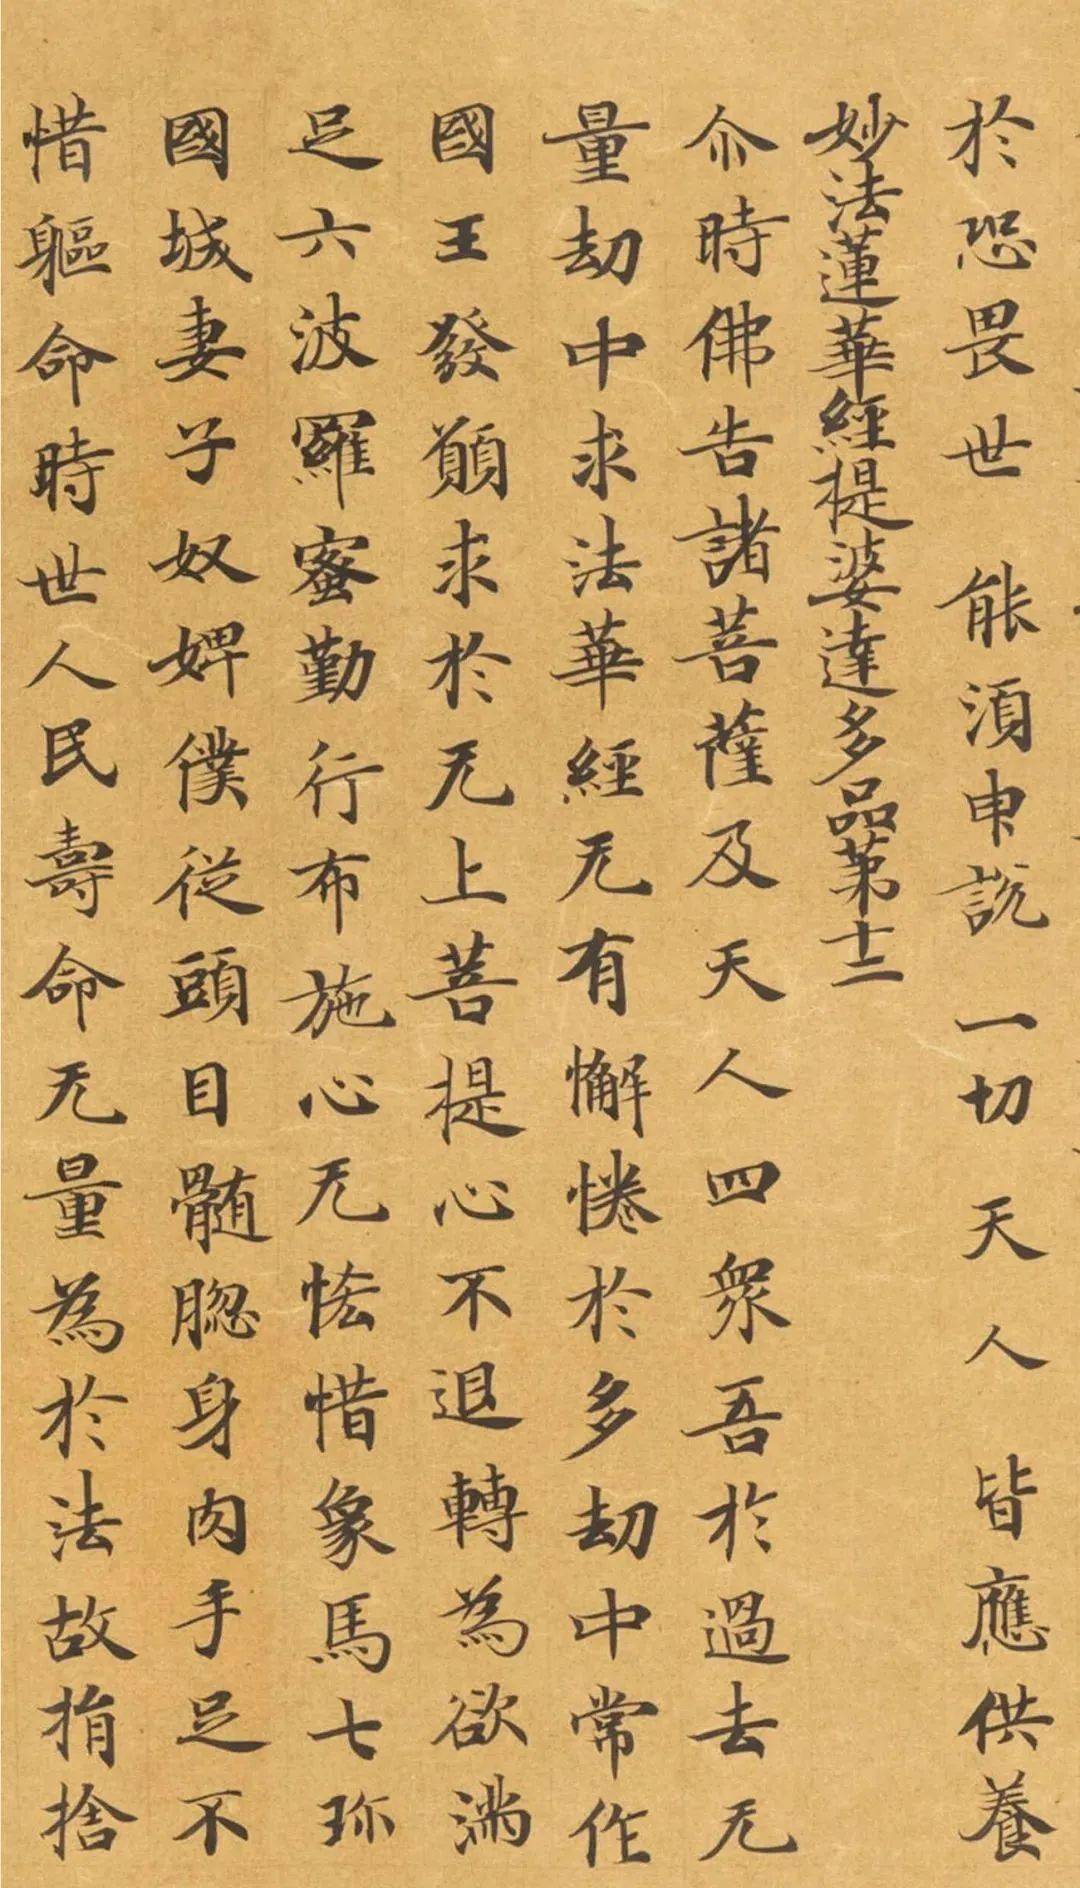 於恐畏世 能湏申說 一切天人 皆應供養
妙法蓮華經提婆達多品第十二
尒時佛告諸菩薩及天人四眾吾於過去无
量劫中求法華經无有懈惓於多劫中常作
國王發願求於无上菩提心不退轉為欲滿
足六波羅蜜勤行布施心无恡惜象馬七珎
國城妻子奴婢僕從頭目髓𦛁身肉手足不
惜軀命時世人民壽命无量為於法故捐捨